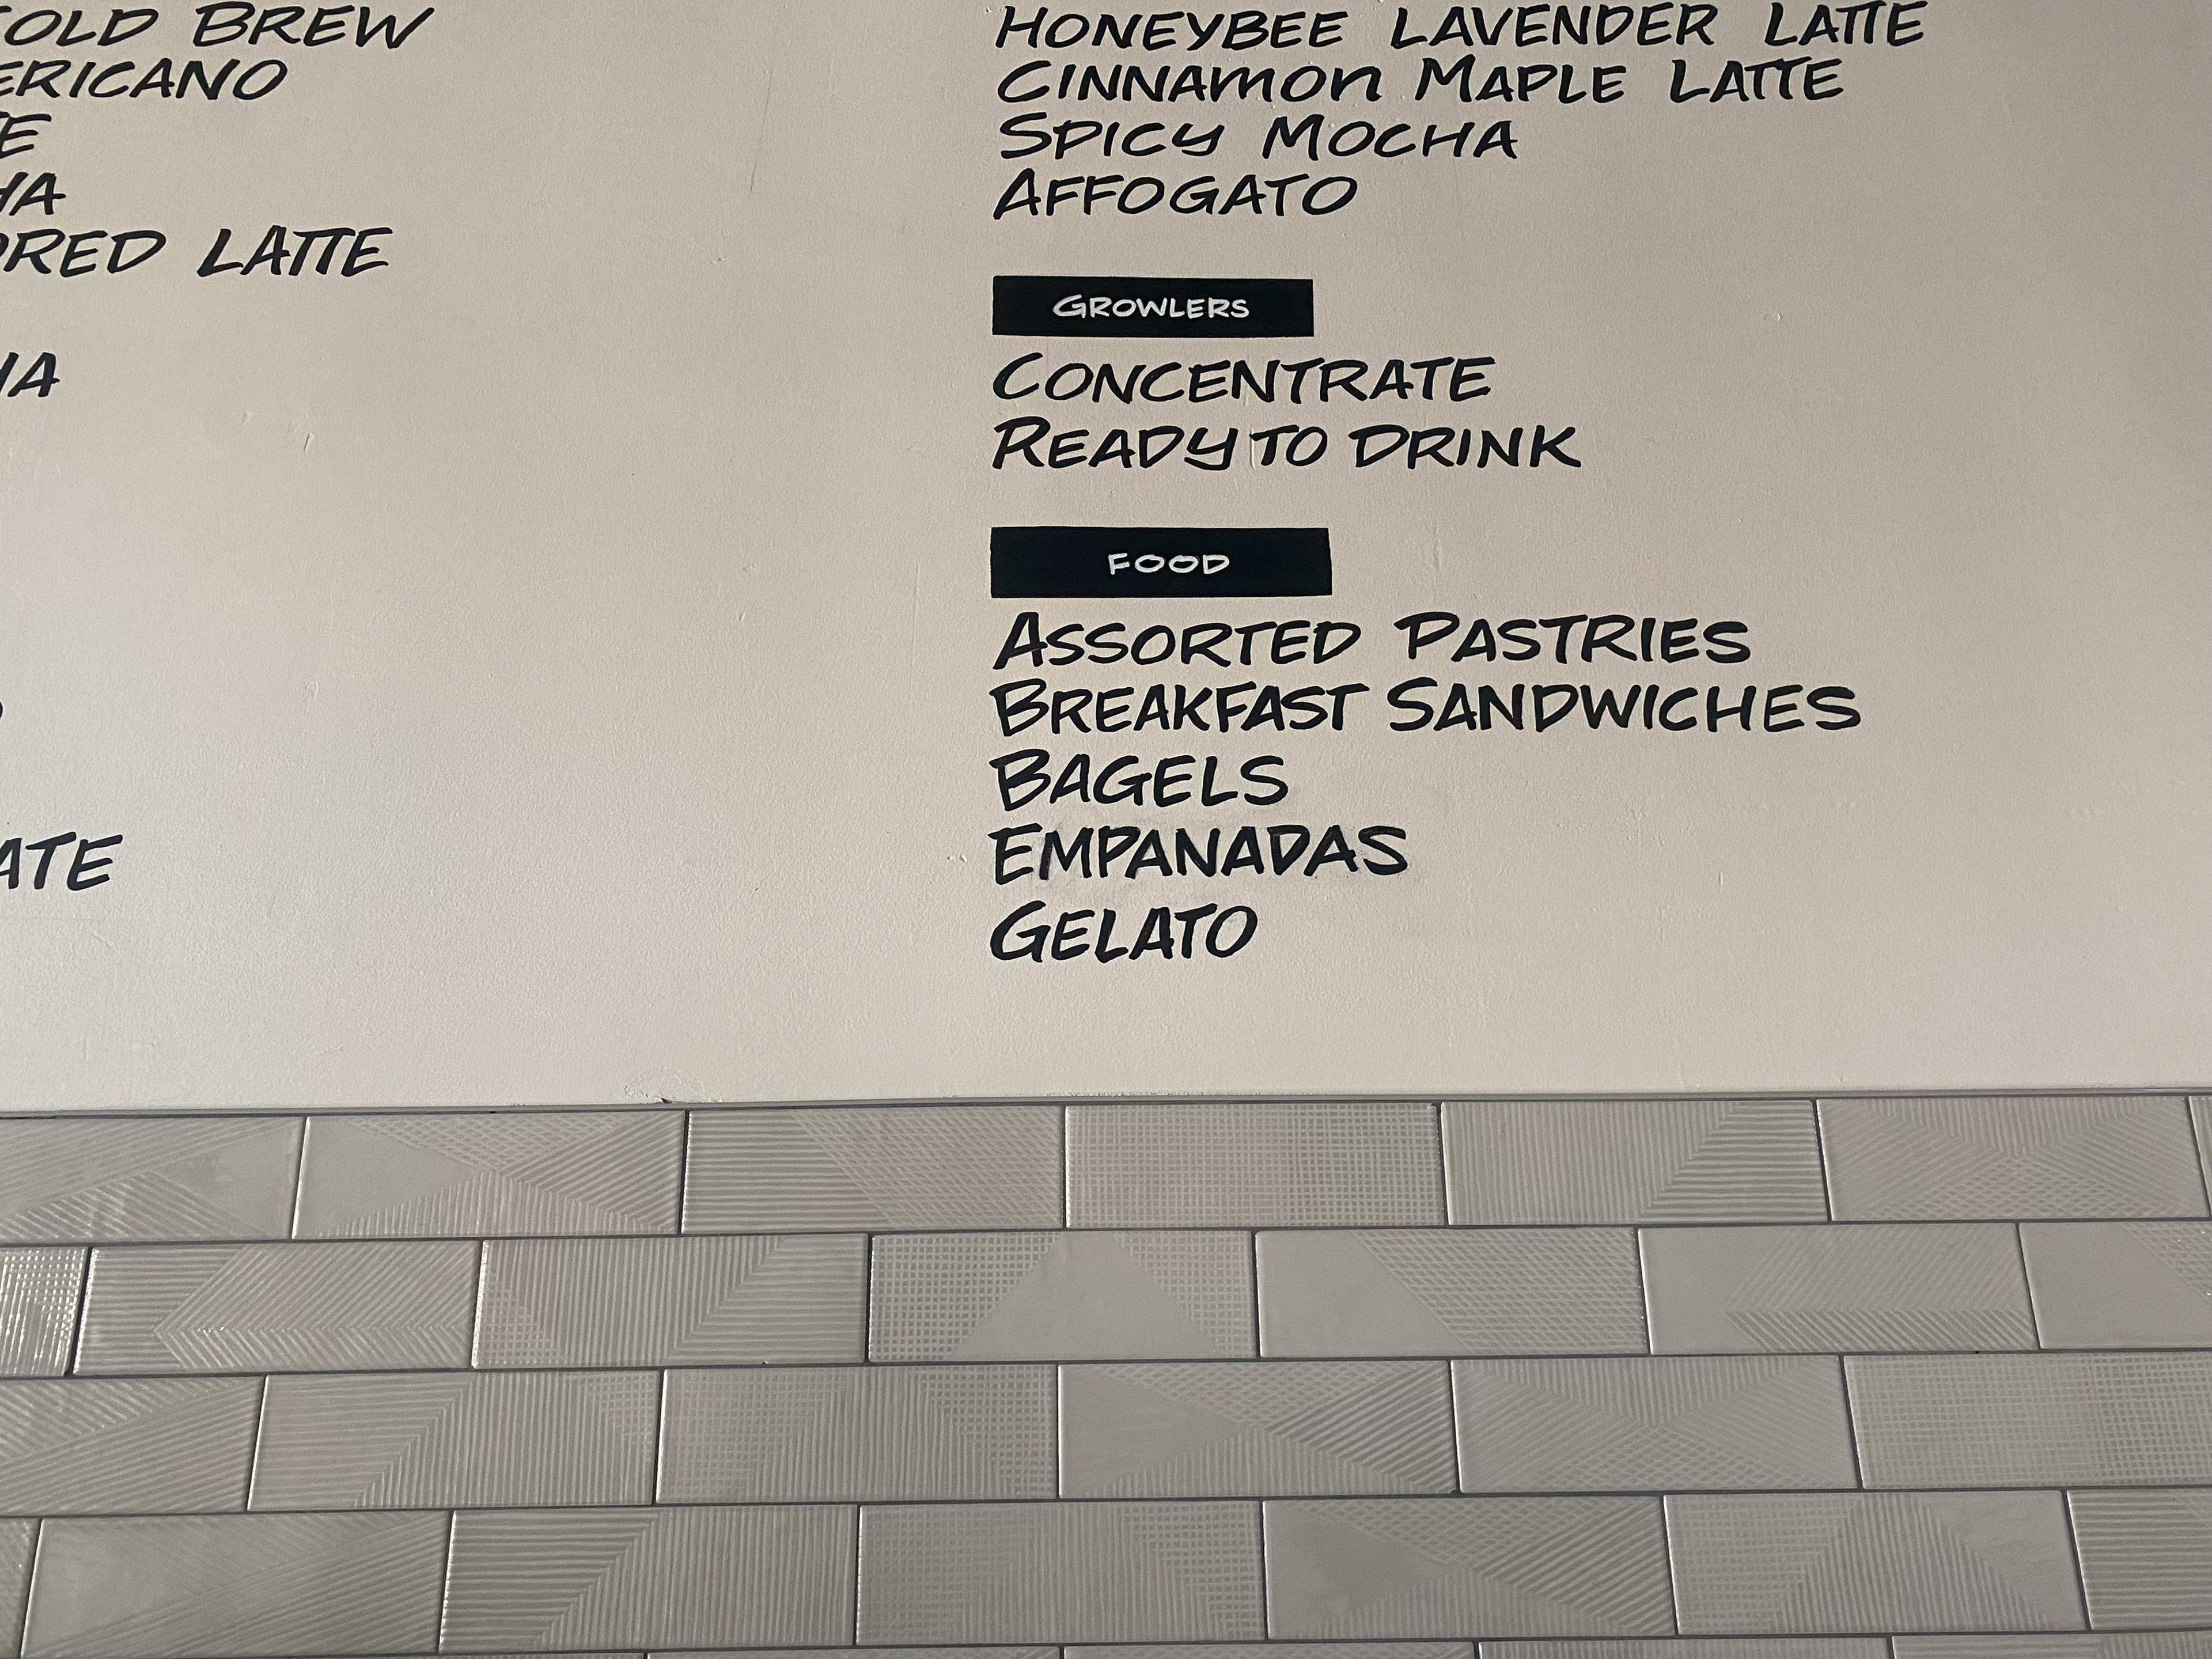 BREW
LATTE
HONEYBEE LAVENDER LATTE
CINNAMON MAPLE LATTE
SPICY MOCHA
AFFOGATO
GROWLERS
CONCENTRATE
READY TO DRINK
FOOD
ASSORTED PASTRIES
BREAKFAST SANDWICHES
BAGELS
EMPANADAS
GELATO